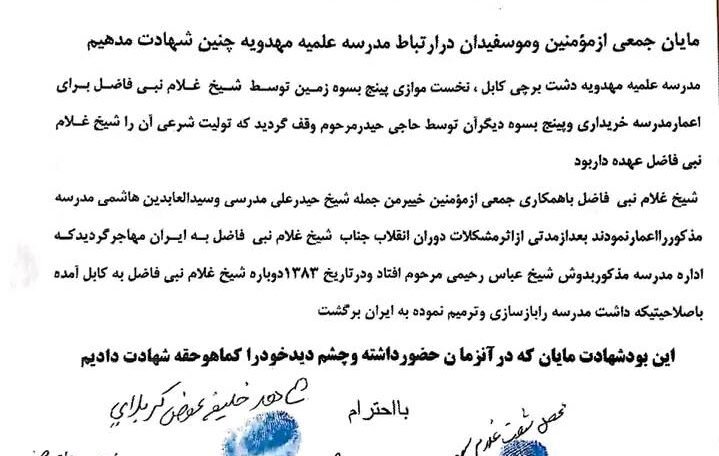 مایان جمعی ازمؤمنین وموسفیدان درارتباط مدرسه علمیه مهدویه چنین شهادت مدهیم
مدرسه علمیه مهدویه دشت برچی کابل ، نخست موازی پینج بسوه زمین توسط شیخ غلام نبی فاضل برای
اعمارمدرسه خریداری وپینج بسوه دیگرآن توسط حاجی حیدرمرحوم وقف گردید که تولیت شرعی آن را شیخ غلام
نبی فاضل عهده داربود
شیخ غلام نبی فاضل باهمکاری جمعی ازمؤمنین خییرمن جمله شیخ حیدرعلی مدرسی وسیدالعابدین هاشمی مدرسه
مذکوررااعمارنمودند بعدازمدتی ازاثرمشکلات دوران انقلاب جناب شیخ غلام نبی فاضل به ایران مهاجرگردیدکه
اداره مدرسه مذکوربدوش شیخ عباس رحیمی مرحوم افتاد ودرتاریخ ۱۳۸۳دوباره شیخ غلام نبی فاضل به کابل آمده
باصلاحیتیکه داشت مدرسه رابازسازی وترمیم نموده به ایران برگشت
این بودشهادت مایان که درآنزمان حضورداشته وچشم دیدخودرا کماهوحقه شهادت دادیم
بااحترام
خلیفه عوض کربلای